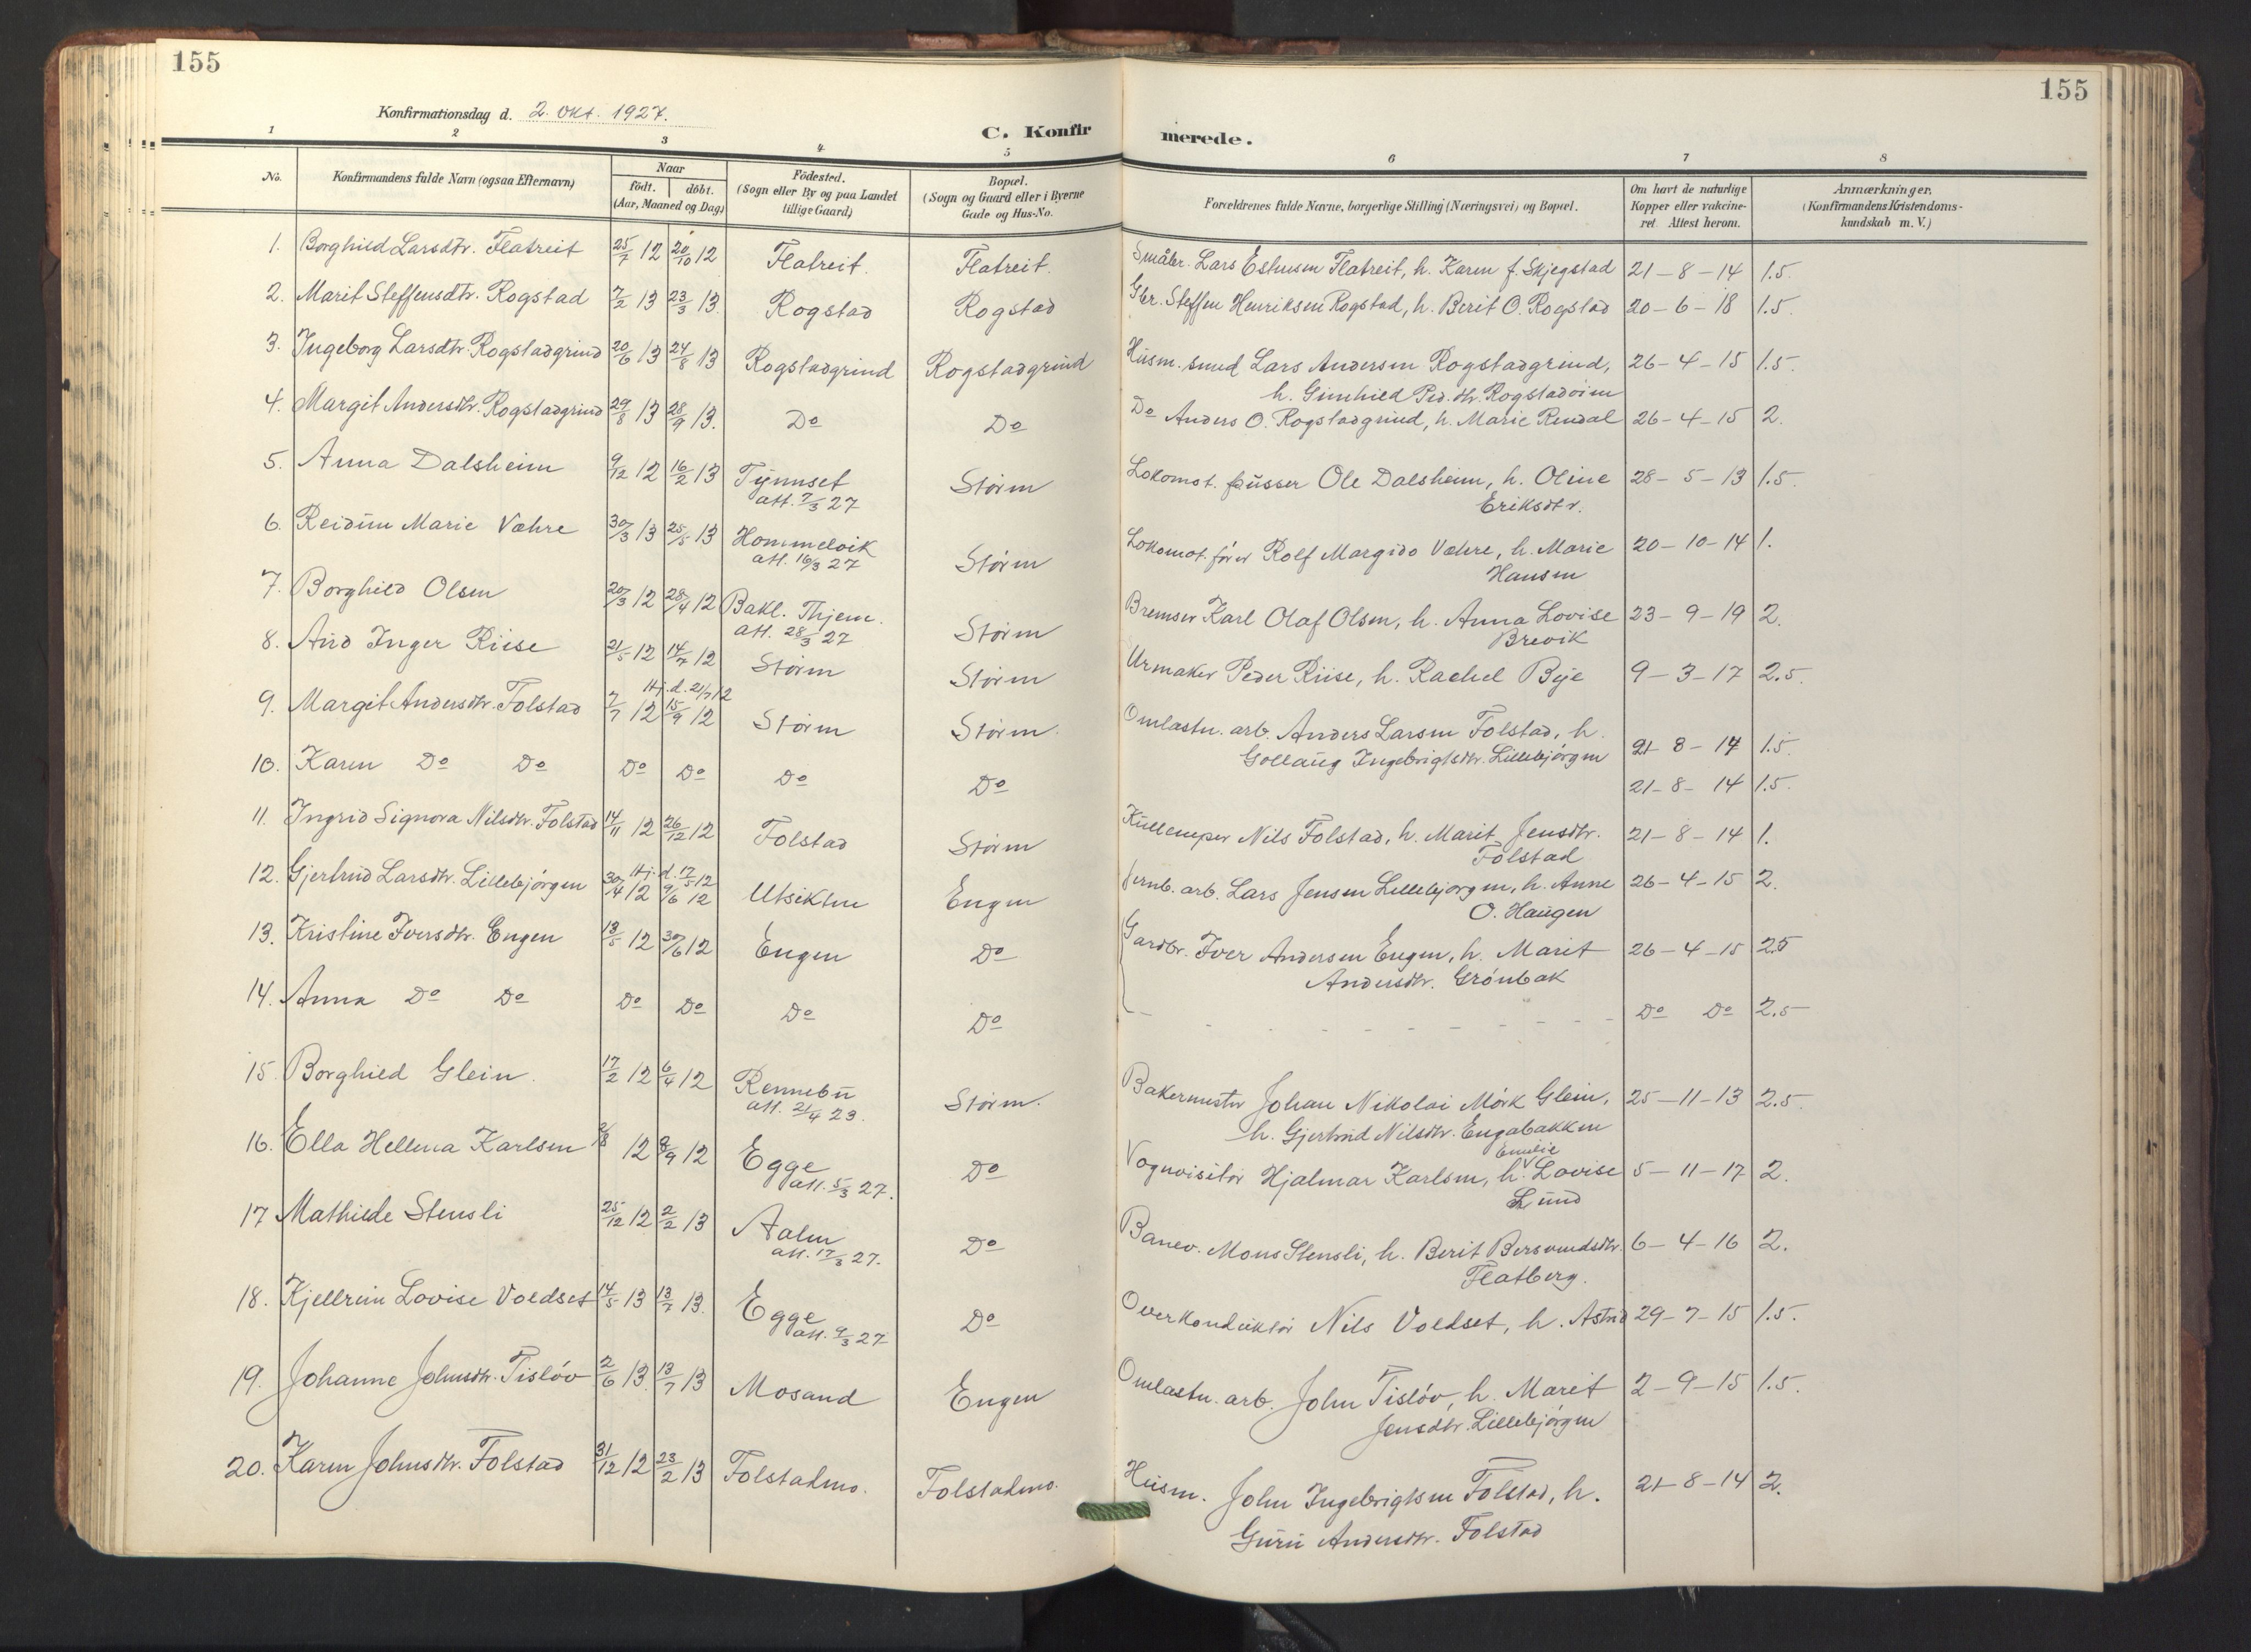 155
155
Konfirmationsdag d. 2. Okt. 1927.
C. Konfirmerede.
1 2 3 4 5 6 7 8
No.
Konfirmandens fulde Navn (ogsaa Efternavn)
Naar
födt. döbt.
(Aar, Maaned og Dag)
Födested.
(Sogn eller By og paa Landet
tillige Gaard)
Bopæl.
(Sogn og Gaard eller i Byerne
Gade og Hus-No.
Forældrenes fulde Navne, borgerlige Stilling (Næringsvei) og Bopæl.
Om havt de naturlige
Kopper eller vakcine-
ret. Attest herom.
Anmærkninger.
(Konfirmandens Kristendoms-
kundskab m. V.)
1. Borghild Larsdtr. Flatreit 25/7 12 20/10 12 Flatreit. Flatreit. Småbr. Lars Flatreit, h. Karen f. Skjegstad 21-8-14 1.5.
2. Marit Steffensdtr. Rogstad 7/2 13 23/3 13. Rogstad Rogstad Gbr. Steffen Henriksen Rogstad, h. Berit O. Rogstad 20-6-18 1.5.
3. Ingeborg Larsdtr. Rogstadgrind 20/6 13 24/8 13 Rogstadgrind Rogstadgrind Husm. smed Lars Andersen Rogstadgrind, 26-4-15 1.5.
h. Gunhild Ped.dtr.
4. Margit Andersdtr. Rogstadgrind 29/8 13 28/9 13. Do Do Do Anders O. Rogstadgrind, h. Marie Rendal 26-4-15 2.
5. Anna Dalsheim 9/12 12 16/2 13 Tynnset Støren Lokomot. pusser Ole Dalsheim, h. Oline 28-5-13 1.5.
att. 7/3 27
Eriksdtr.
6. Reidun Marie Væhre 30/3 13 25/5 13 Hommelvik Støren Lokomot. fører Rolf Margido Væhre, h. Marie 20-10-14 1.
att. 16/3 27
Hansen
7. Borghild Olsen 20/3 12 28/4 12 Bakl. Thjem. Støren Bremser Karl Olaf Olsen, h. Anna Lovise 23-9-19 2.
att. 28/3 27
Brevik
8. Aud Inger Riise 21/5 12 14/7 12 Støren Støren Urmaker Peder Riise, h. Rachel Bye 9-3-17 2.5.
Hj.d. 21/7 12
9. Margit Andersdtr. Folstad 7/7 12 15/9 12 Støren Støren. Omlastn. arb. Anders Larsen Folstad, h.
Gollaug Ingebrigtsdtr. Lillebjørgen 21-8-14 1.5.
10. Karen Do Do Do Do Do Do 21-8-14 1.5.
11. Ingrid Signora Nilsdtr. Folstad 14/11 12 26/12 12 Folstad Støren Kullemper Nils Folstad, h. Marit Jensdtr. 21-8-14 1.
Folstad
Hj.d. 17/5 12
12. Gjertrud Larsdtr. Lillebjørgen 30/4 12 9/6 12 Utsikten Engen Jernb. arb. Lars Jensen Lillebjørgen, h. Anne 26-4-15 2.
O. Haugen
13. Kristine Iversdtr. Engen 13/5 12 30/6 12 Engen Do Gardbr. Iver Andersen Engen, h. Marit 26-4-15 2.5
Andersdtr. Grønbak
14. Anna Do Do Do Do Do Do - - - - - - - - - Do Do 2.5
15. Borghild Glein. 17/2 12 6/4 12 Rennebu Støren. Bakermester Johan Nikolai Mørk Glein, 25-11-13 2.5.
att. 21/4 23.
h. Gjertrud Nilsdtr. Engabakken
16. Ella Hellena Karlsen /8 12 8/9 12 Egge Do Vognvisitør Hjalmar Karlsen, h. Emilie Lovise 5-11-17 2.
att. 5/3 27.
Lund
17 Mathilde Stensli 25/12 12 2/2 13 Aalen Do Banev. Mons Stensli, h. Berit Bersvendsdtr. 6-4-16 2.
att. 17/3 27.
Flatberg.
18. Kjellrun Lovise Voldset 14/5 13 13/7 13. Egge Do Overkonduktør Nils Voldset, h. Astrid 29-7-15 1.5.
att. 9/3 27
19. Johanne Johnsdtr. Tisløv 2/6 13. 13/7 13 Mosand Engen Omlastn. arb. John Tisløv, h. Marit 2-9-15 1.5.
Jensdtr. Lillebjørgen
20. Karen Johnsdtr. Folstad 31/12 12 23/2 13 Folstadmo. Folstadmo. Husm. John Ingebrigtsen Folstad, h. 21-8-14 2.
Guru Andersdtr. Folstad